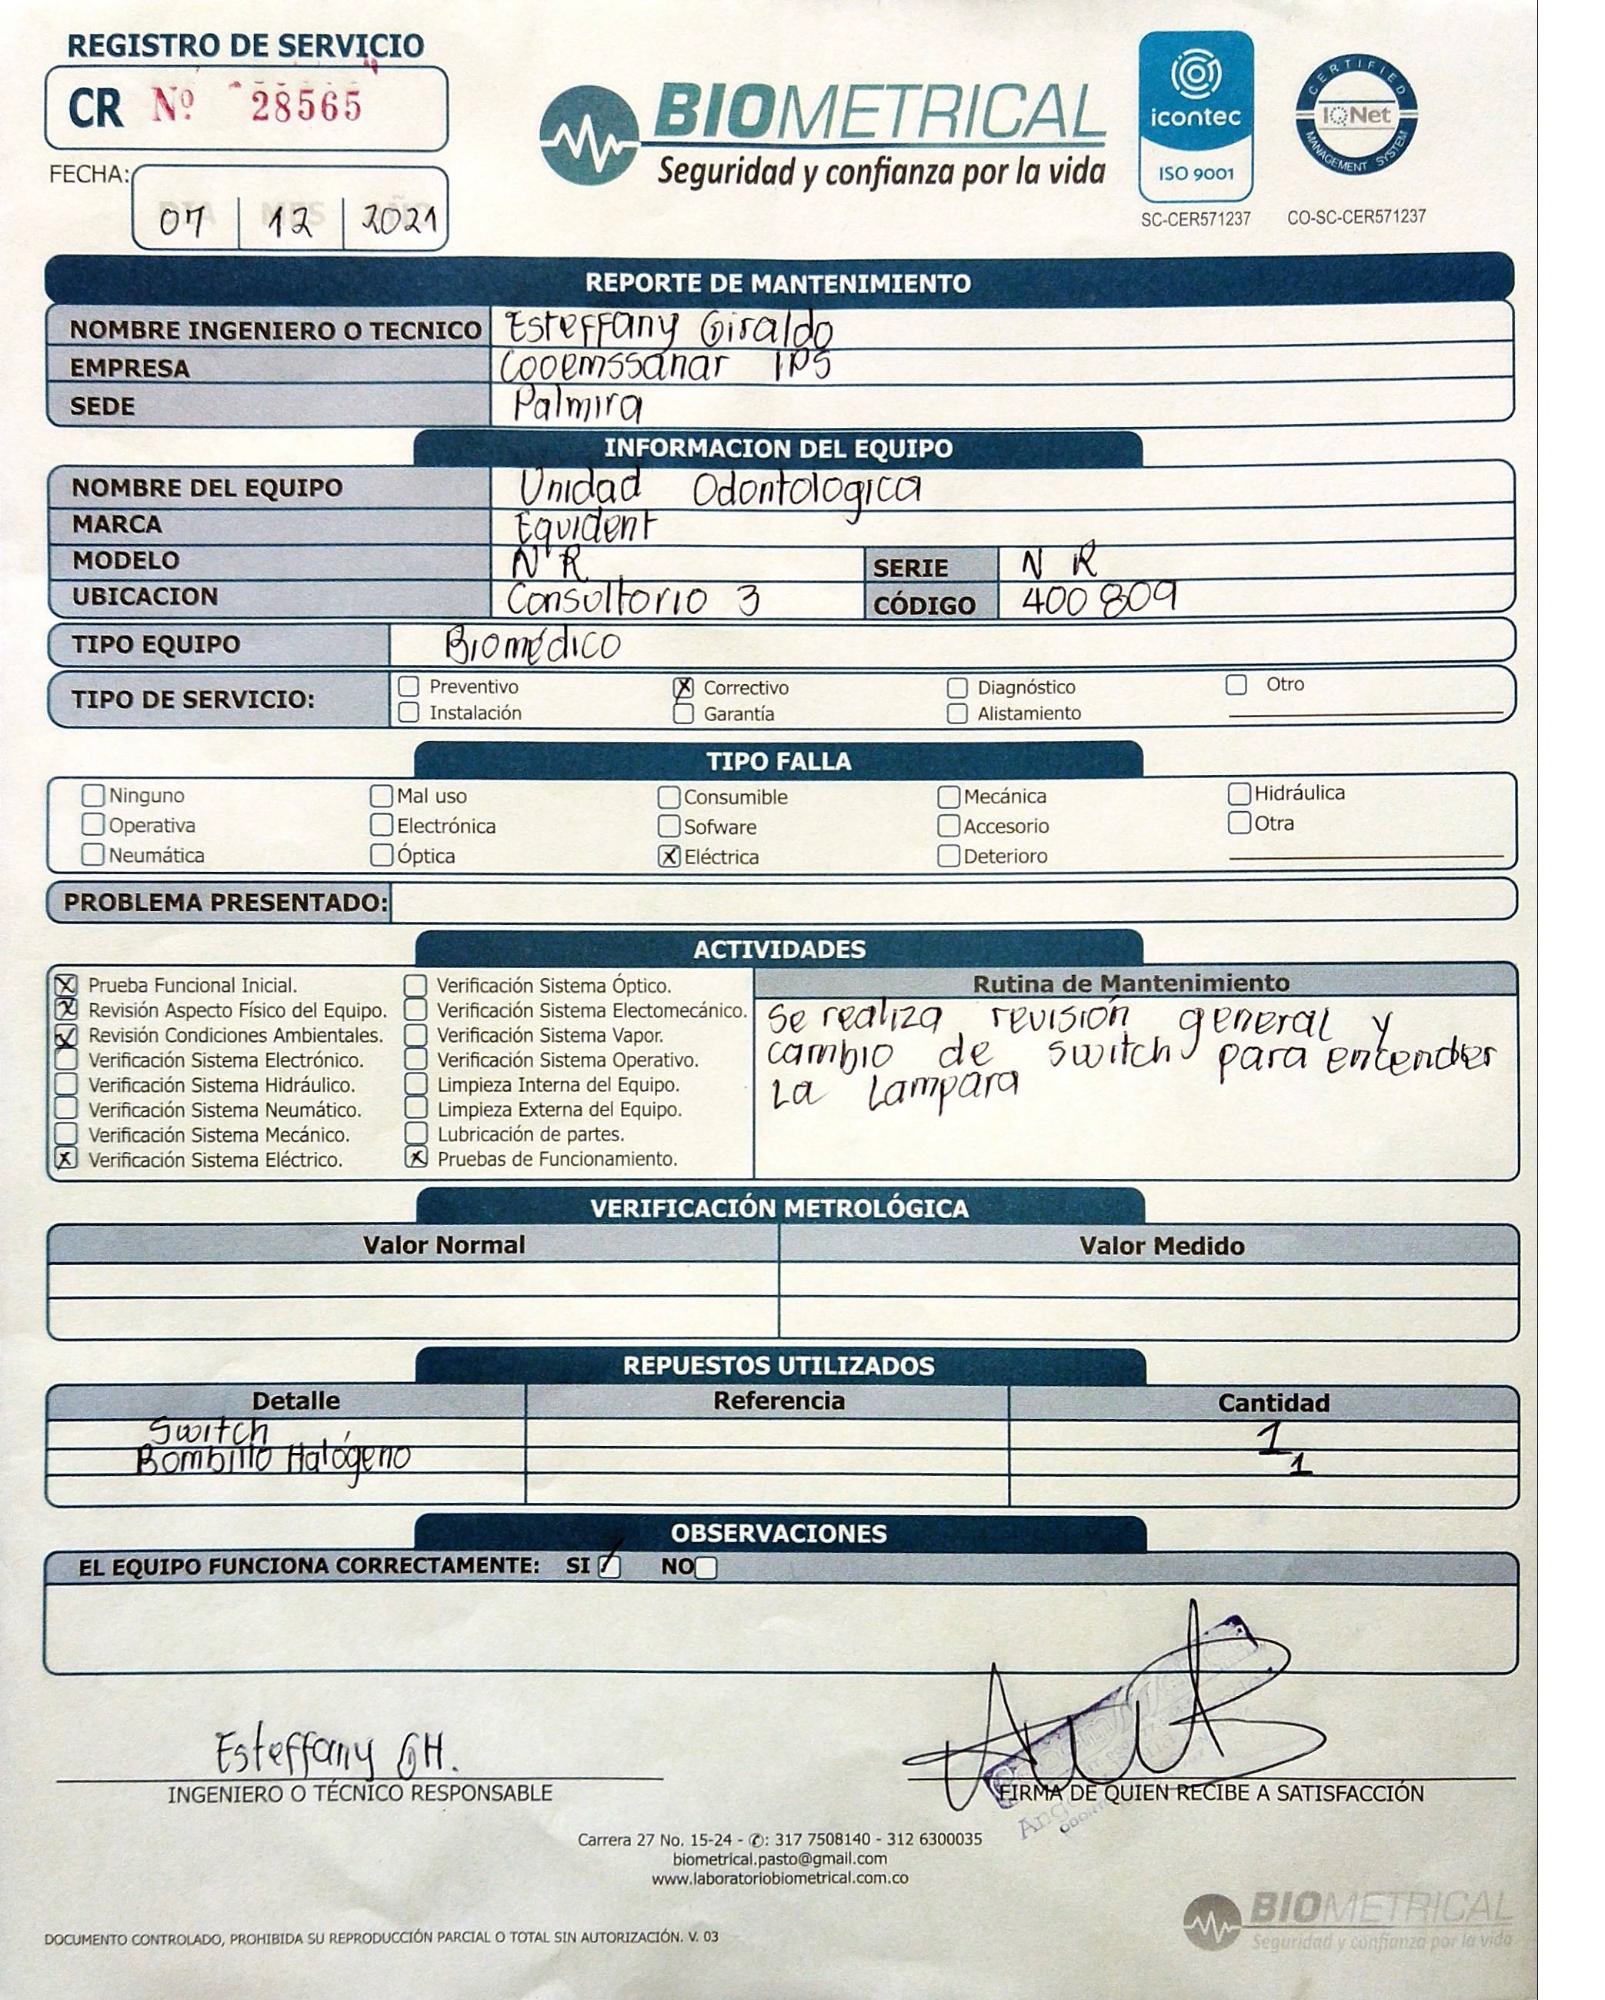 REGISTRO DE SERVICIO
CR Nº 28565
FECHA:
07 12 2021
BIOMETRICAL
Seguridad y confianza por la vida
icontec
ISO 9001
SC-CER571237
CERTIFIED
IQNet
MANAGEMENT SYSTEM
CO-SC-CER571237
REPORTE DE MANTENIMIENTO
NOMBRE INGENIERO O TECNICO Esteffany Giraldo
EMPRESA Cooemssanar IPS
SEDE Palmira
INFORMACION DEL EQUIPO
NOMBRE DEL EQUIPO Unidad Odontologica
MARCA Equident
MODELO NR SERIE NR
UBICACION Consultorio 3 CÓDIGO 400809
TIPO EQUIPO Biomédico
TIPO DE SERVICIO:
Preventivo X Correctivo Diagnóstico Otro
Instalación Garantía Alistamiento
TIPO FALLA
Ninguno Mal uso Consumible Mecánica Hidráulica
Operativa Electrónica Sofware Accesorio Otra
Neumática Óptica X Eléctrica Deterioro
PROBLEMA PRESENTADO:
ACTIVIDADES
X Prueba Funcional Inicial.
X Revisión Aspecto Físico del Equipo.
X Revisión Condiciones Ambientales.
Verificación Sistema Electrónico.
Verificación Sistema Hidráulico.
Verificación Sistema Neumático.
Verificación Sistema Mecánico.
X Verificación Sistema Eléctrico.
Verificación Sistema Óptico.
Verificación Sistema Electomecánico.
Verificación Sistema Vapor.
Verificación Sistema Operativo.
Limpieza Interna del Equipo.
Limpieza Externa del Equipo.
Lubricación de partes.
X Pruebas de Funcionamiento.
Rutina de Mantenimiento
Se realiza revisión general y
cambio de switch para encender
La Lampara
VERIFICACIÓN METROLÓGICA
Valor Normal Valor Medido
REPUESTOS UTILIZADOS
Detalle Referencia Cantidad
Switch 1
Bombillo Halógeno 1
OBSERVACIONES
EL EQUIPO FUNCIONA CORRECTAMENTE: SI NO
Esteffany GH.
INGENIERO O TÉCNICO RESPONSABLE
FIRMA DE QUIEN RECIBE A SATISFACCIÓN
Carrera 27 No. 15-24 - ✆: 317 7508140 - 312 6300035
biometrical.pasto@gmail.com
www.laboratoriobiometrical.com.co
BIOMETRICAL
Seguridad y confianza por la vida
DOCUMENTO CONTROLADO, PROHIBIDA SU REPRODUCCIÓN PARCIAL O TOTAL SIN AUTORIZACIÓN. V. 03